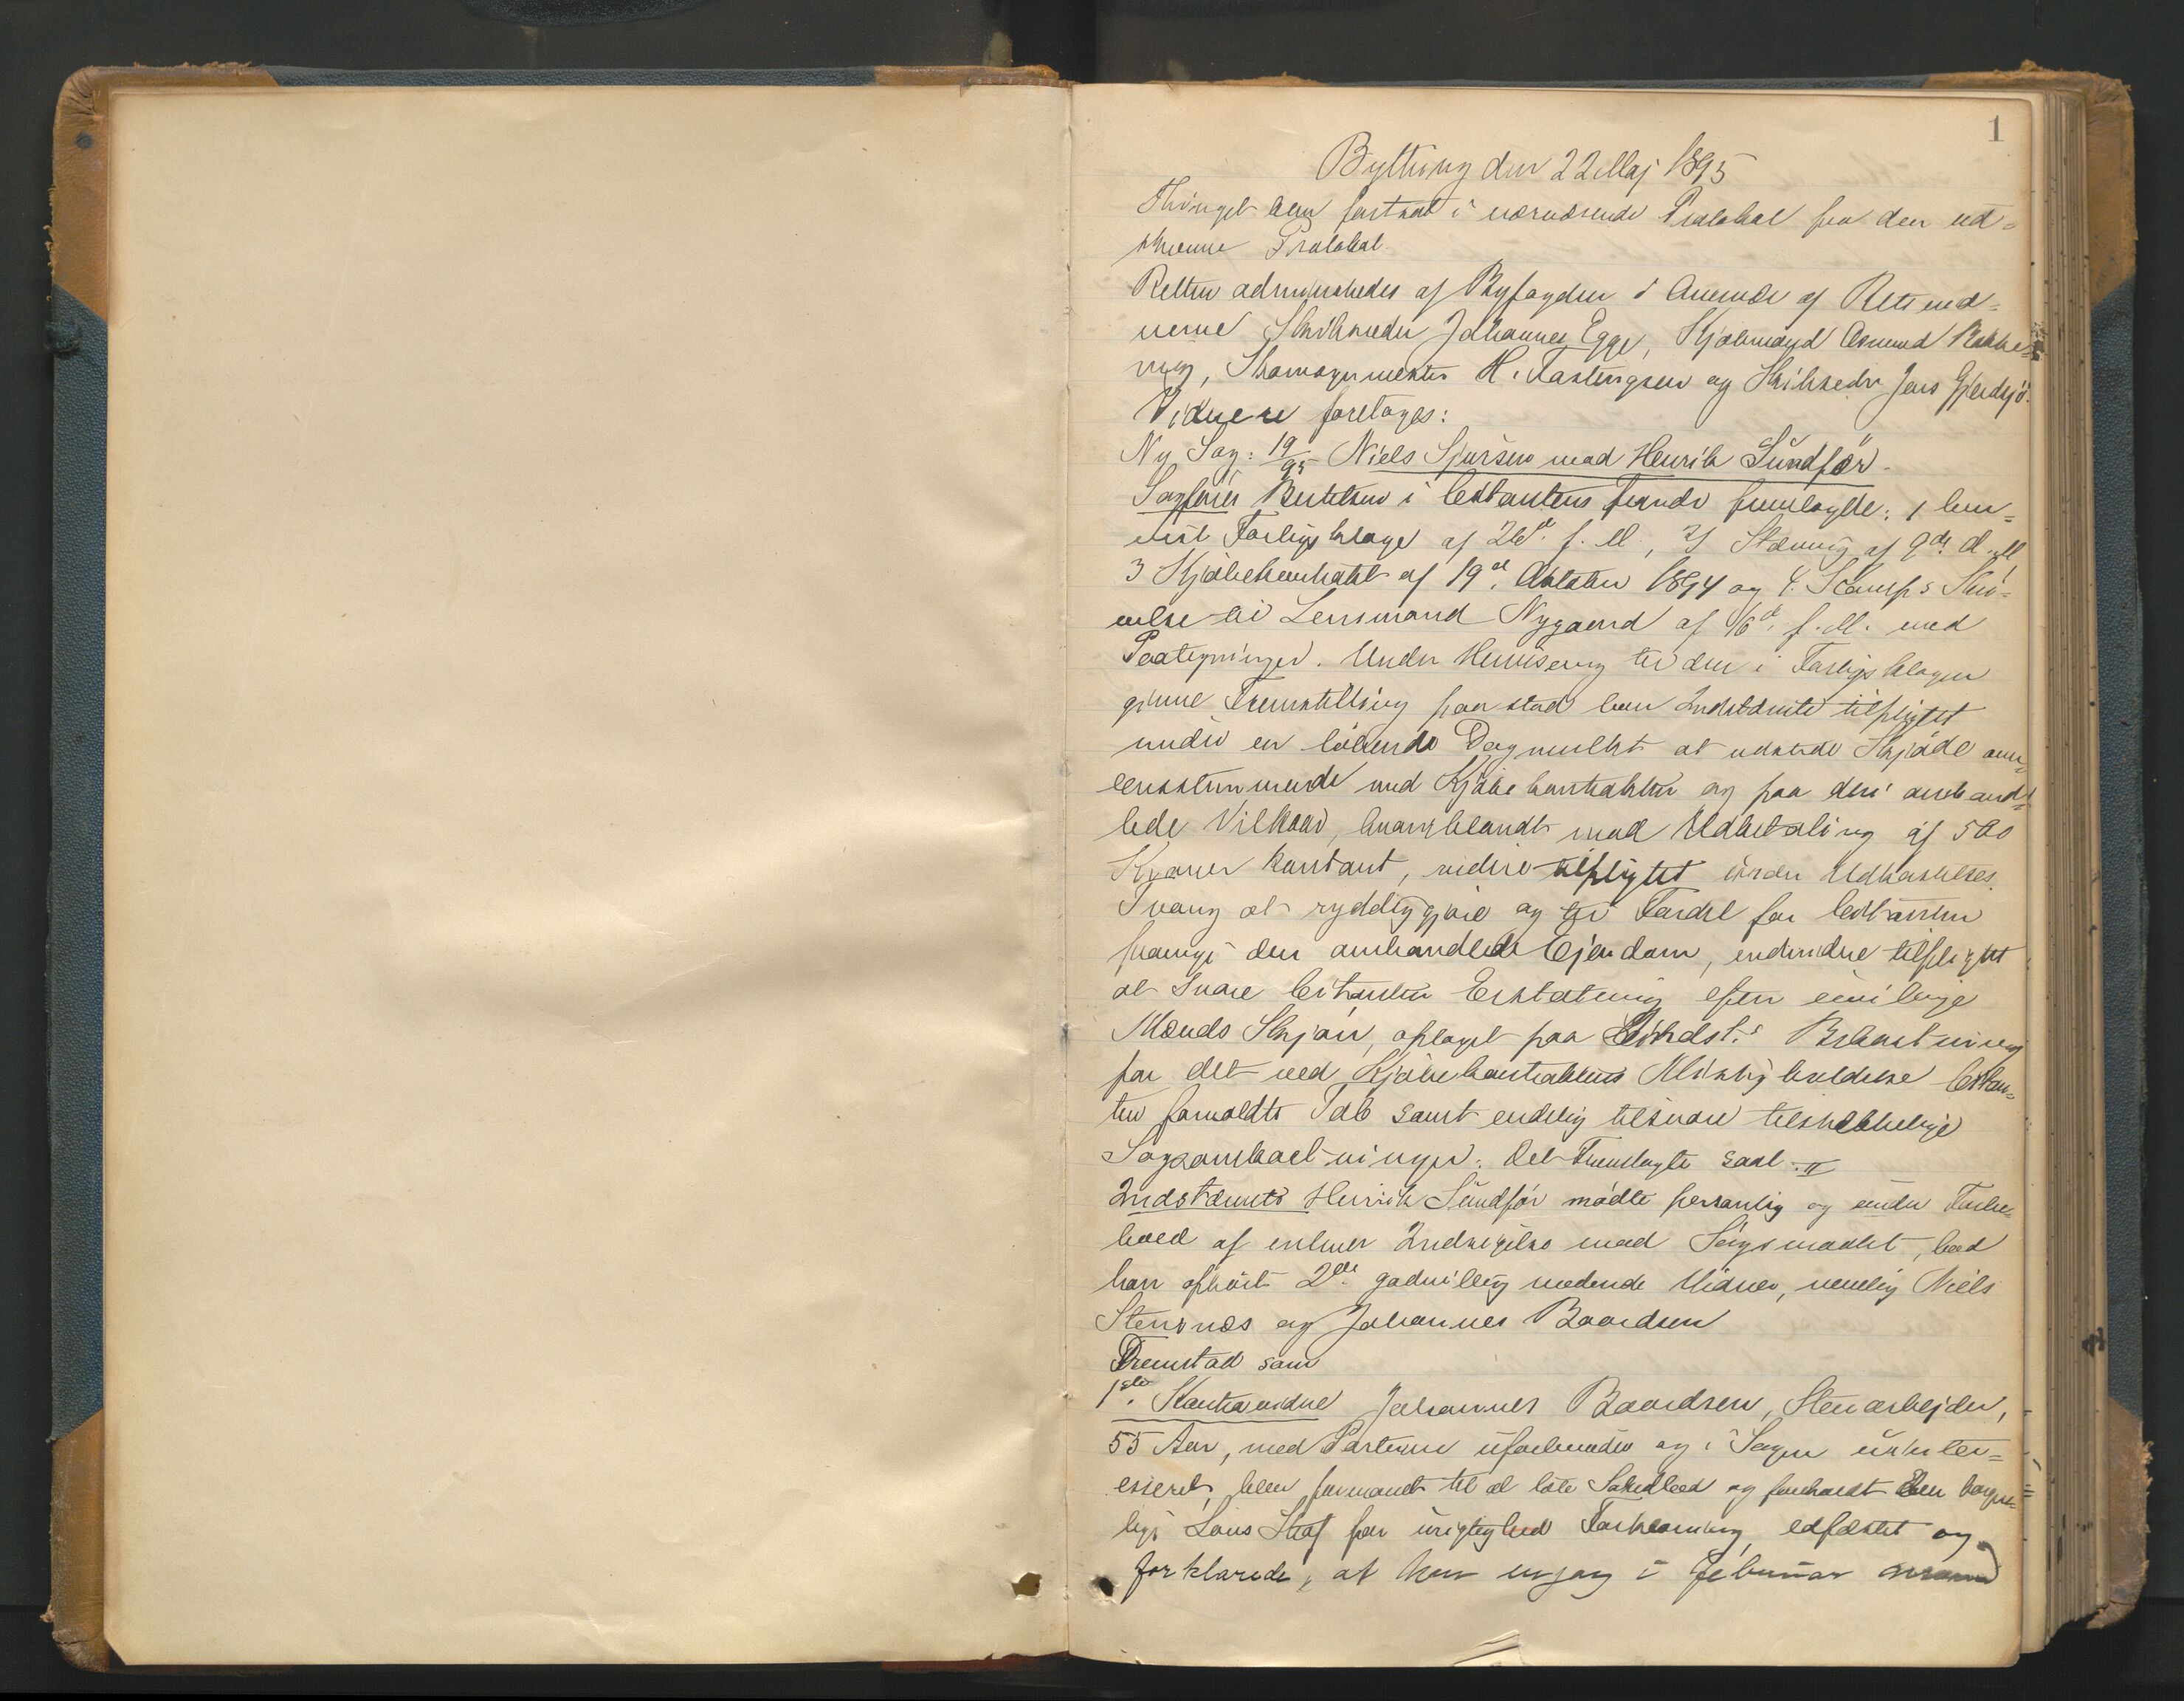 1
Bything den 22 Maj 1895
Thinget blev fortsat i nærværende Protokol fra den ud-
skrevne Protokol.
Retten administredes af Byfogden i Overvær af Retsvid-
nerne Skibsreder Johannes Egge, Kjøbmand Asmund
H. Fastingsen og Skibsreder Jens Gjerdsjö.
Videre foretoges:
Ny Sag: 19/95 Niels Sjursen mod Henrik Sundför.
Sagfører Bertelsen i Citantens Sted fremlagde: 1 bene-
ficeret Forligsklage af 26de f. M., 2) Stævning af 9de d. M.
3 Kjøbekontrakt af 19de Oktober 1894 og 4. Skri-
velse til Lensmand Nygaard af 16de f. M. med
Paategninger. Under Henvisning til den i Forligsklagen
givne Fremstilling paastod han Indstævnte tilpligtet
under en løbende Dagmulkt at udstede Skjøde over-
ensstemmende med Kjøbekontrakten og paa deri omhand-
lede Vilkaar, hvoriblandt mod Udbetaling af 500
Kroner kontant, videre tilpligtet under Udkastelses
Tvang at ryddiggjøre og til Fordel for Citanten
fravige den omhandlede Ejendom, endvidere tilpligtet
at svare Citanten Erstatning efter uvillige
Mænds Skjøn, optaget paa Indst.s Bekostning
for det ved Kjøbekontraktens Misligholdelse Citan-
ten forvoldte Tab samt endelig tilsvare tilstrækkelige
Sagsomkostninger. Det Fremlagte saal. //
Indstævnte Henrik Sundför mødte personlig og under Forbe-
hold af enhver Indsigelse mod Søgsmaalet, bad
han afhørt 2de godvillig mødende Vidner, nemlig Niels
Stensnæs og Johannes Baardsen
Fremstod som
1ste Kontravidne Johannes Baardsen, Stenarbejder,
55 Aar, med Parterne ubeslægtet og i Sagen uinter-
esseret, blev formanet til at tale Sandhed og foreholdt den borger-
lige Lovs Straf for urigtig Forklaring, edfæstet og
forklarede, at han engang i Februar